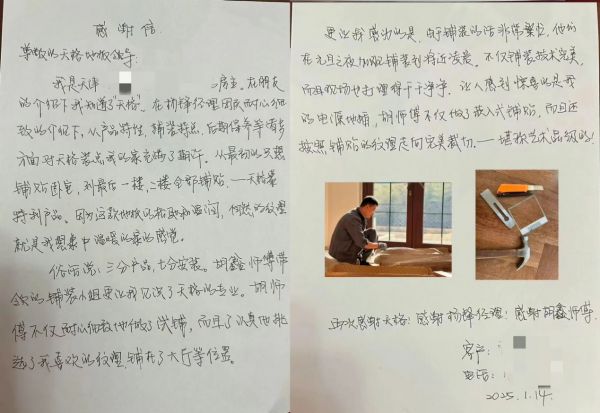 感谢信
尊敬的天格地板领导
我是天津 房主,在朋友
的介绍下我知道了"天格"。在杨锋经理团队耐心细
致的介绍下,从产品特性,铺装特点,后期保养等诸多
方面对天格装点我的家充满了期许。从最初的只想
铺贴卧室,到最后一楼,二楼全部铺贴.——天格
特利产品。因为这款地板的 和温润,
就是我想象中温暖的家的感觉。
俗话说:三分产品,七分安装。胡鑫师傅带
领的铺装小组更让我见识了天格的专业。胡师
傅不仅耐心细致地做了试铺,而且了认真地挑
选了我喜欢的纹理,铺在了大厅等位置。
更让我感动的是,由于铺装的活非常繁忙,他们
在元旦之夜加班铺装到将近凌晨,不仅铺装技术完美,
而且现场也打理得干干净净。让人感到惊喜的是我
的电源地插,胡师傅不仅做了嵌入式铺贴,而且还
按照铺贴的纹理走向完美裁切.——堪称艺术品级的!
再次感谢天格!感谢杨锋经理!感谢胡鑫师傅.
客户:
电话:
2025.1.14.